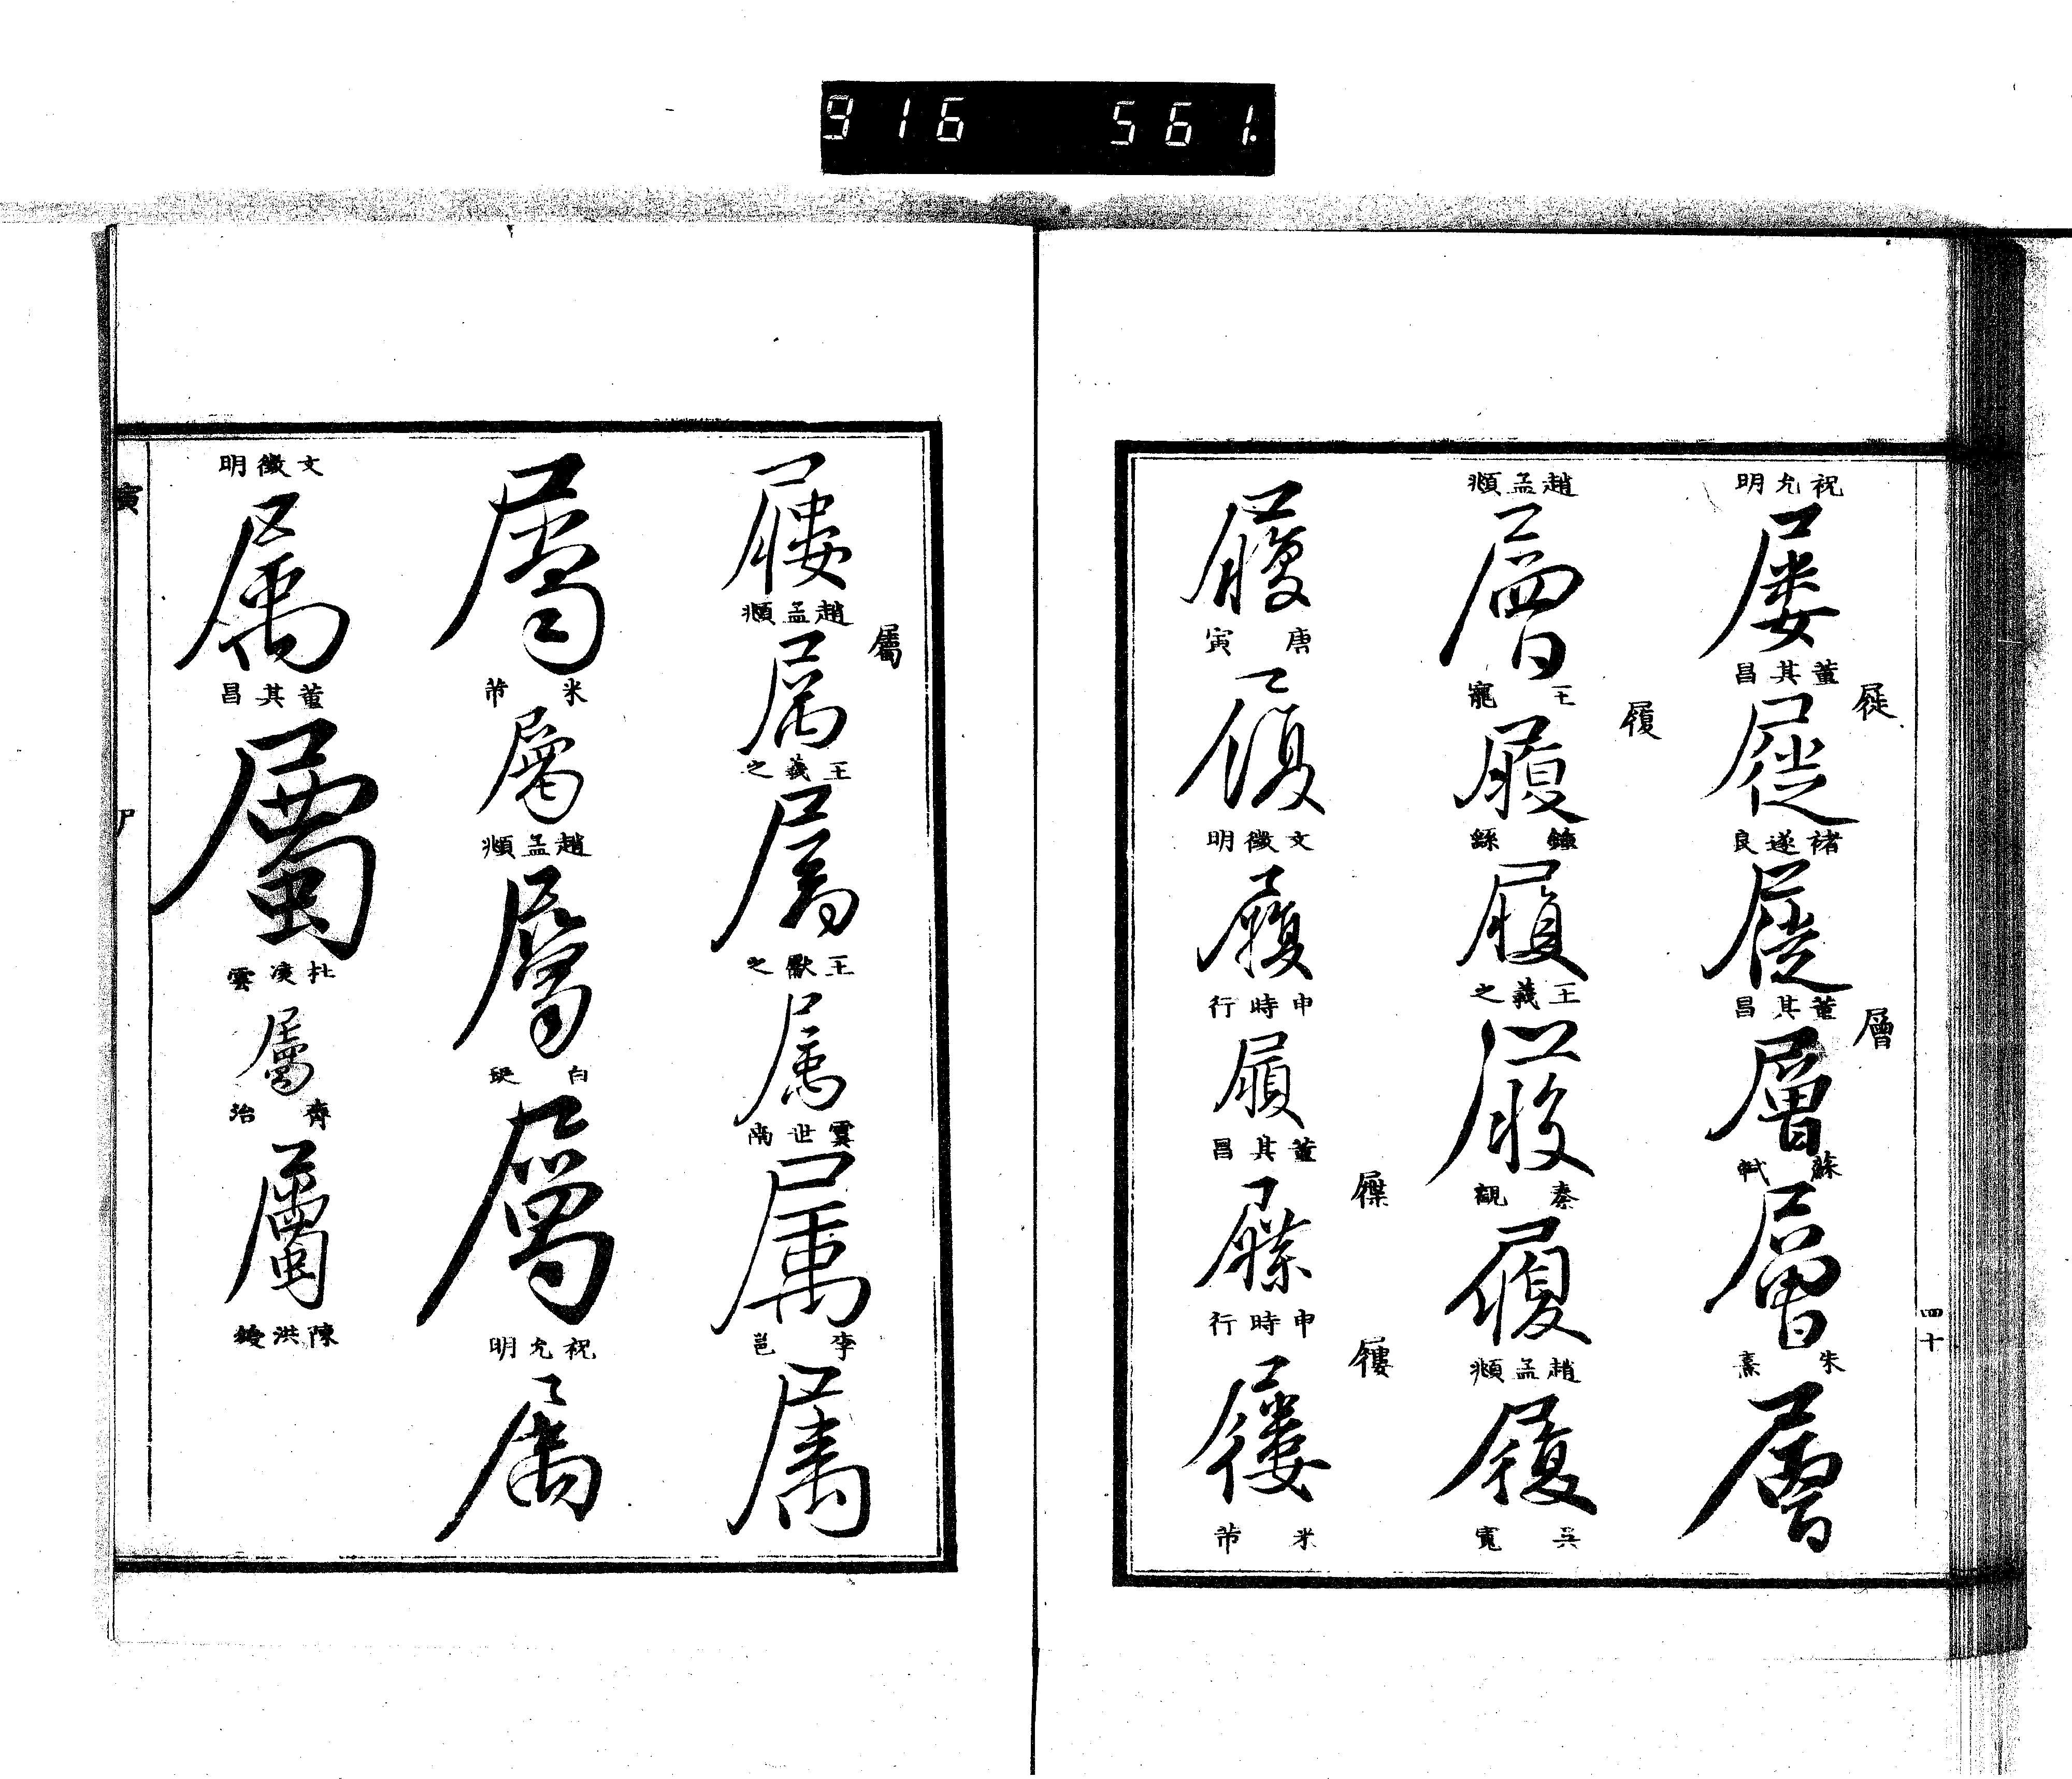 916 561.
四十
屢
祝允明
屣
屣
董其昌
屣
褚遂良
層
層
董其昌
層
蘇軾
層
朱熹
層
趙孟頫
履
履
王寵
履
鍾繇
履
王羲之
履
秦觀
履
趙孟頫
履
吳寬
履
唐寅
履
文徵明
履
申時行
履
董其昌
屧
屧
申時行
屨
屨
米芾
屨
趙孟頫
屬
属
王羲之
属
王獻之
属
虞世南
属
李邕
属
屬
米芾
屬
趙孟頫
屬
白玉
屬
祝允明
属
文徵明
属
董其昌
屬
屬
齊治
屬
陳洪綬
寅
尸